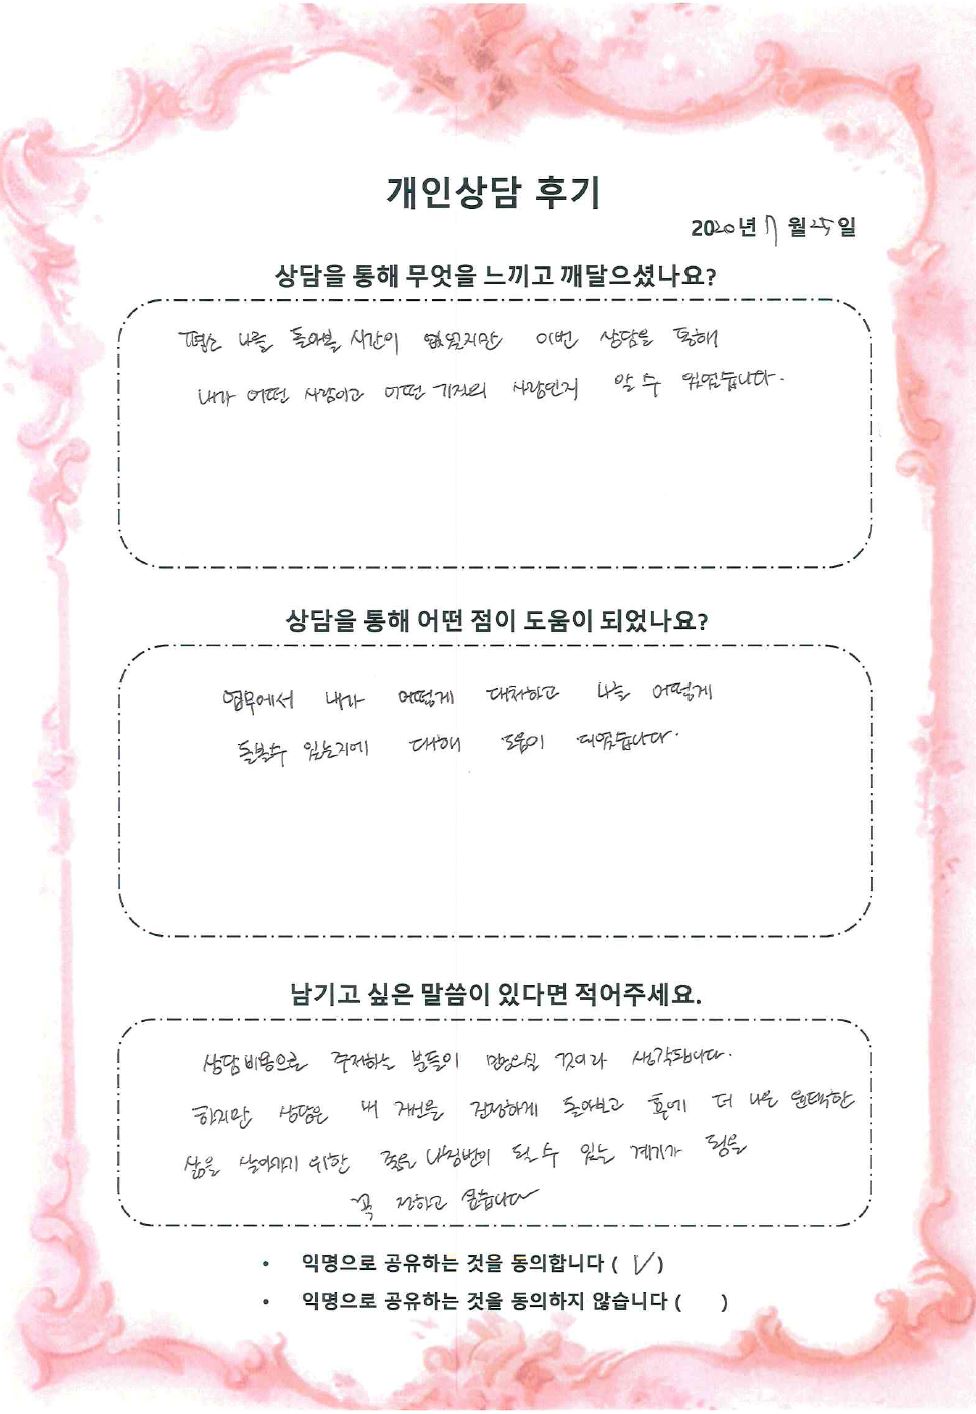 개인상담 후기
2020년 7월 25일
상담을 통해 무엇을 느끼고 깨달으셨나요?
평소 나를 돌아볼 시간이 없었지만 이번 상담을 통해
내가 어떤 사람이고 어떤 기질의 사람인지 알 수 있었습니다.
상담을 통해 어떤 점이 도움이 되었나요?
업무에서 내가 어떻게 대처하고 나를 어떻게
돌볼수 있는지에 대해 도움이 되었습니다.
남기고 싶은 말씀이 있다면 적어주세요.
상담비용으로 주저하는 분들이 많으실 것이라 생각됩니다.
하지만 상담은 내 개선을 진정하게 돌아보고 더 나은 윤택한
삶을 살아가기 위한 좋은 나침반이 될 수 있는 계기가 됨을
꼭 전하고 싶습니다
• 익명으로 공유하는 것을 동의합니다 ( V )
• 익명으로 공유하는 것을 동의하지 않습니다 ( )